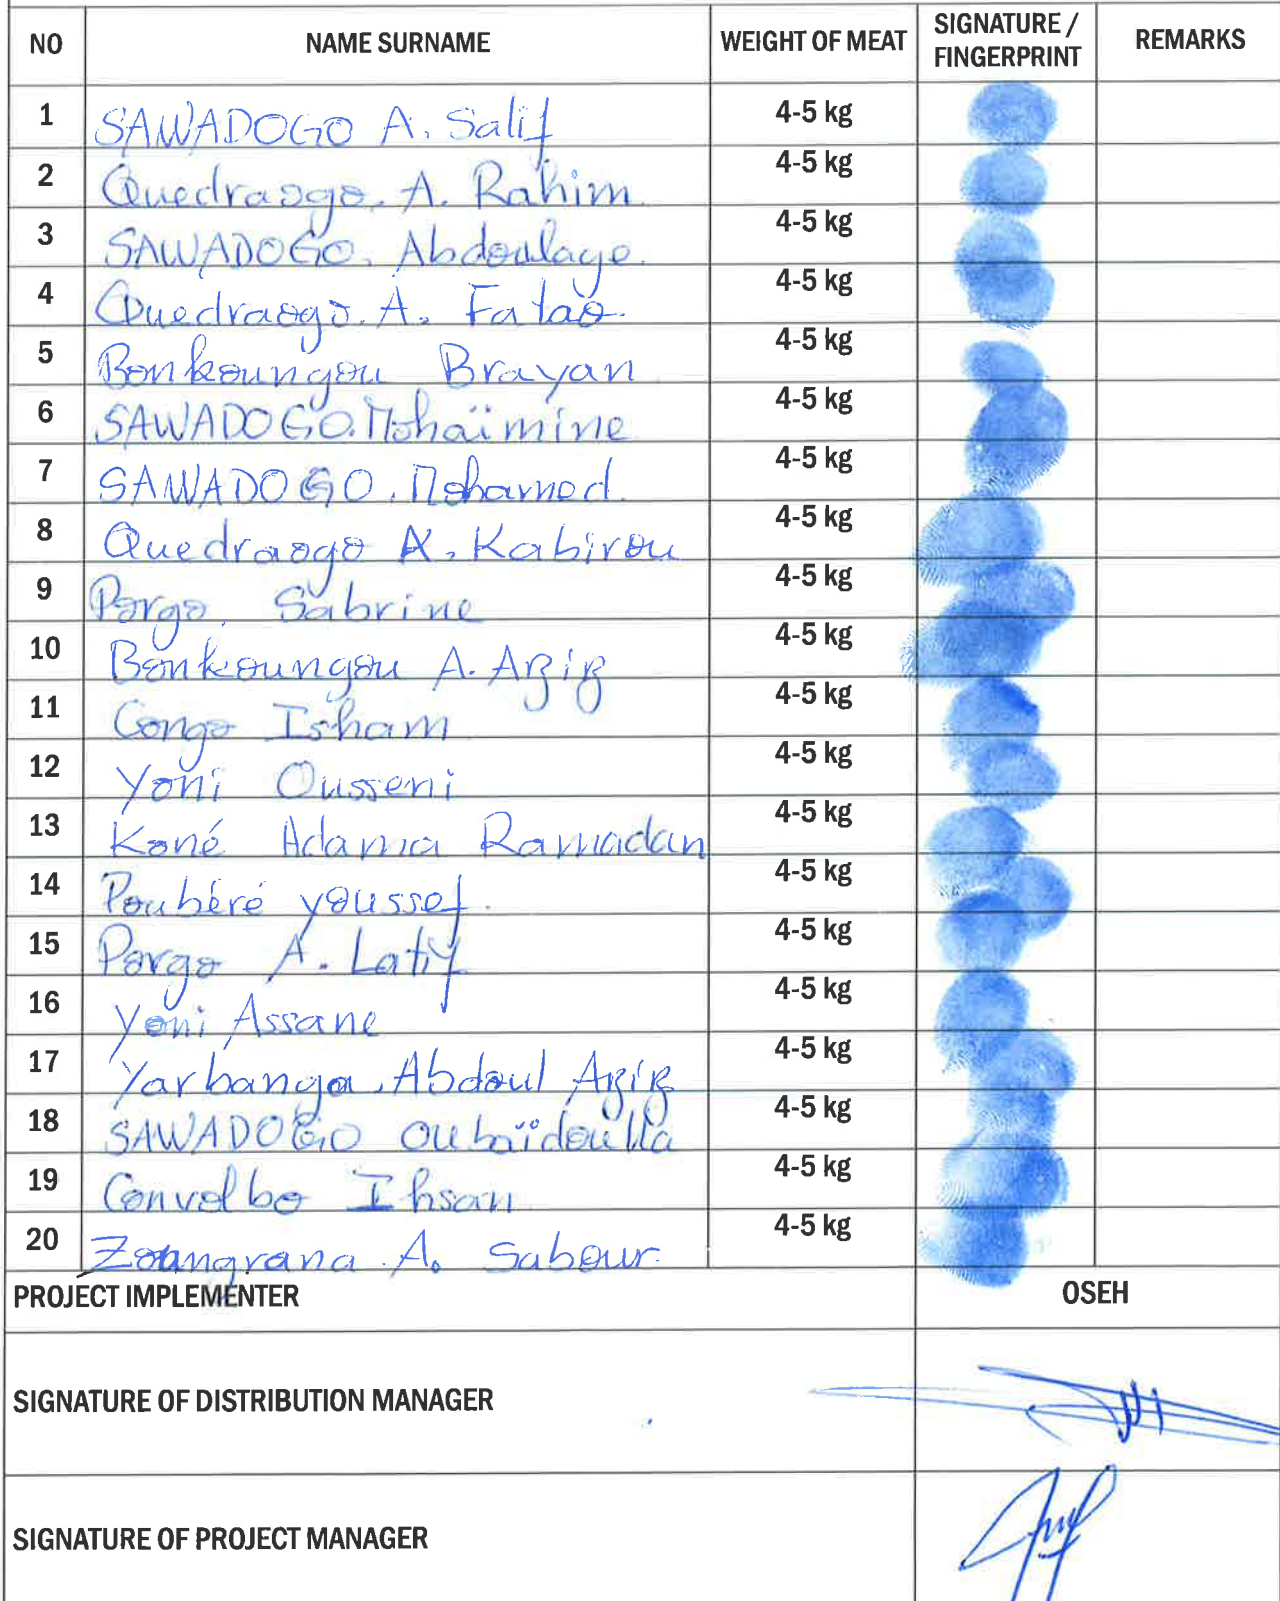 NO NAME SURNAME WEIGHT OF MEAT SIGNATURE / FINGERPRINT REMARKS
1 SAWADOGO A. Salif 4-5 kg
2 Ouedraogo. A. Rahim 4-5 kg
3 SAWADOGO. Abdoulaye. 4-5 kg
4 Ouedraogo. A. Fatao. 4-5 kg
5 Bonkoungou Brayan 4-5 kg
6 SAWADOGO. Mohaïmine 4-5 kg
7 SAWADOGO. Mohamed. 4-5 kg
8 Ouedraogo A. Kabirou 4-5 kg
9 Porgo. Sabrine 4-5 kg
10 Bonkoungou A. Aziz 4-5 kg
11 Congo Isham 4-5 kg
12 Yoni Ousseni 4-5 kg
13 Koné Adama Ramadan 4-5 kg
14 Poubéré youssef. 4-5 kg
15 Porgo A. Latif 4-5 kg
16 Yoni Assane 4-5 kg
17 Yarbanga. Abdoul Aziz 4-5 kg
18 SAWADOGO oubaïdoulla 4-5 kg
19 Convolbo Ihsan 4-5 kg
20 Zoungrana A. Sabour. 4-5 kg
PROJECT IMPLEMENTER OSEH
SIGNATURE OF DISTRIBUTION MANAGER
SIGNATURE OF PROJECT MANAGER